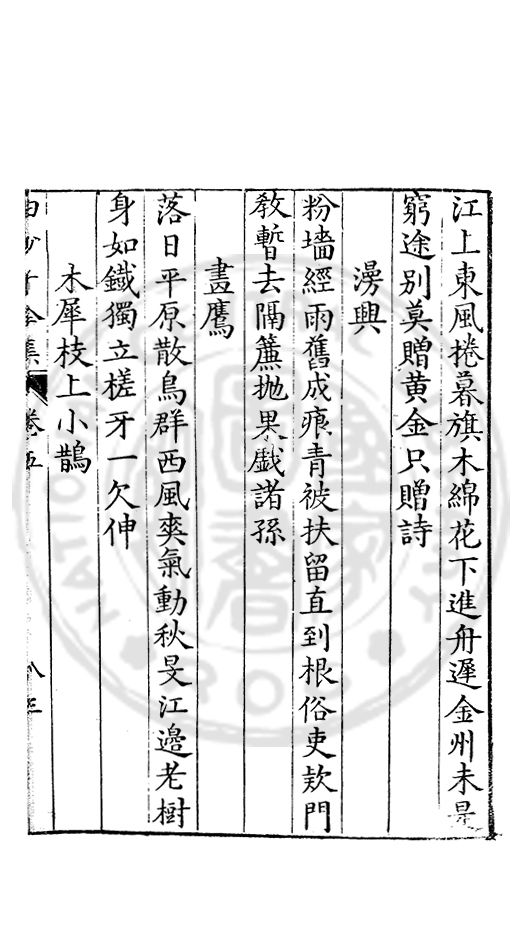 江上東風捲暮旗木綿花下進舟遲金州未是
窮途別莫贈黄金只贈詩
漫興
粉墻經雨舊成痕青被扶留直到根俗吏欵門
教暫去隔簾拋果戱諸孫
畫鷹
落日平原散鳥群西風爽氣動秋旻江邉老樹
身如鐵獨立槎牙一欠伸
木犀枝上小鵲
卷五